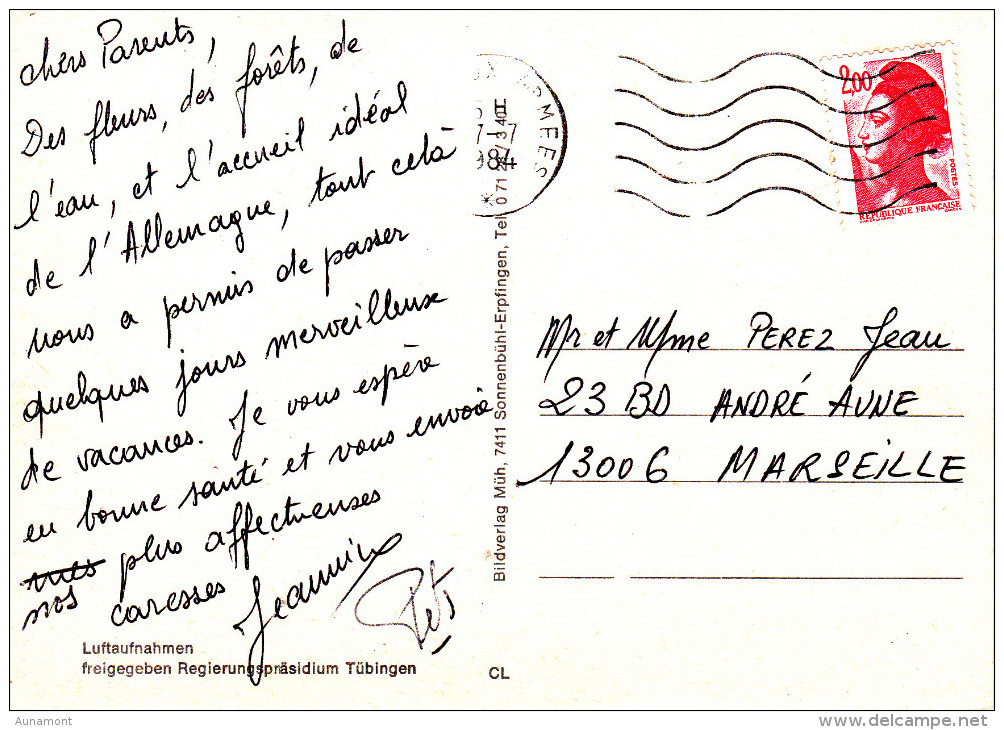 chers Parents,
Des fleurs, des forêts, de
l'eau, et l'accueil idéal
de l'Allemagne, tout celà
nous a permis de passer
quelques jours merveilleux
de vacances. Je vous espère
en bonne santé et vous envoie
mes plus affectueuses
nos caresses
Jeannine
Luftaufnahmen
freigegeben Regierungspräsidium Tübingen
Bildverlag Müh, 7411 Sonnenbühl-Erpfingen, Tel. 0 71 28/3 40
CL
ARMEES
7-7
1984
2,00
POSTES
REPUBLIQUE FRANÇAISE
Mr et Mme PEREZ Jean
23 BD ANDRÉ AUNE
13006 MARSEILLE
Aunamont
delcampe.net